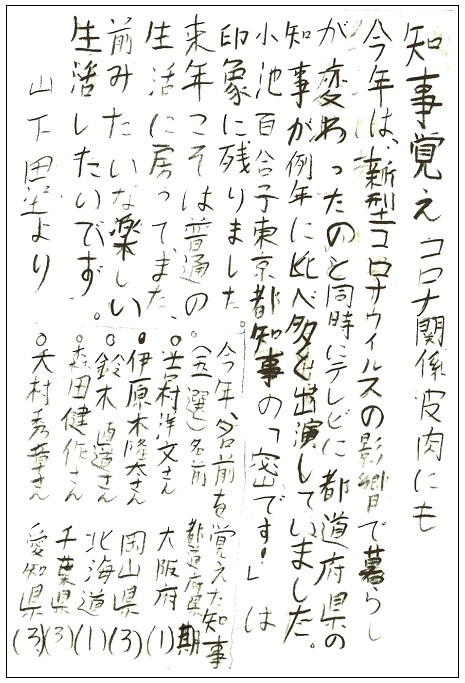 知事覚え コロナ関係皮肉にも
今年は、新型コロナウィルスの影響で暮らし
が変わったのと同時にテレビに都道府県の
知事が例年に比べ多く出演していました。
小池百合子東京都知事の「密です!」は
印象に残りました。
来年こそは普通の
生活に戻って、また、
前みたいな楽しい
生活したいです。
山下田望より
今年、名前を覚えた知事
(五選)名前 都道府県 期
○吉村洋文さん 大阪府(1)
○伊原木隆太さん 岡山県(3)
○鈴木直道さん 北海道(1)
○森田健作さん 千葉県(3)
○大村秀章さん 愛知県(3)